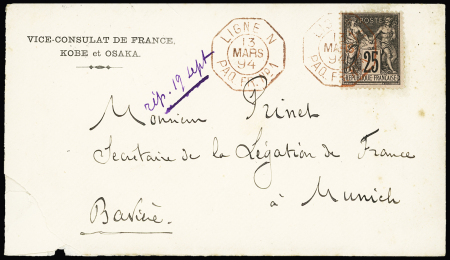 VICE-CONSULAT DE FRANCE,
KOBE et OSAKA.
LIGNE N
13
MARS
94
PAQ. FR. Nº1
LIGNE N
13
MARS
94
PAQ. FR.
POSTE
25
REPUBLIQUE FRANÇAISE
rép. 19 sept
Monsieur Prinet
Secrétaire de la Légation de France
à Munich
Bavière.